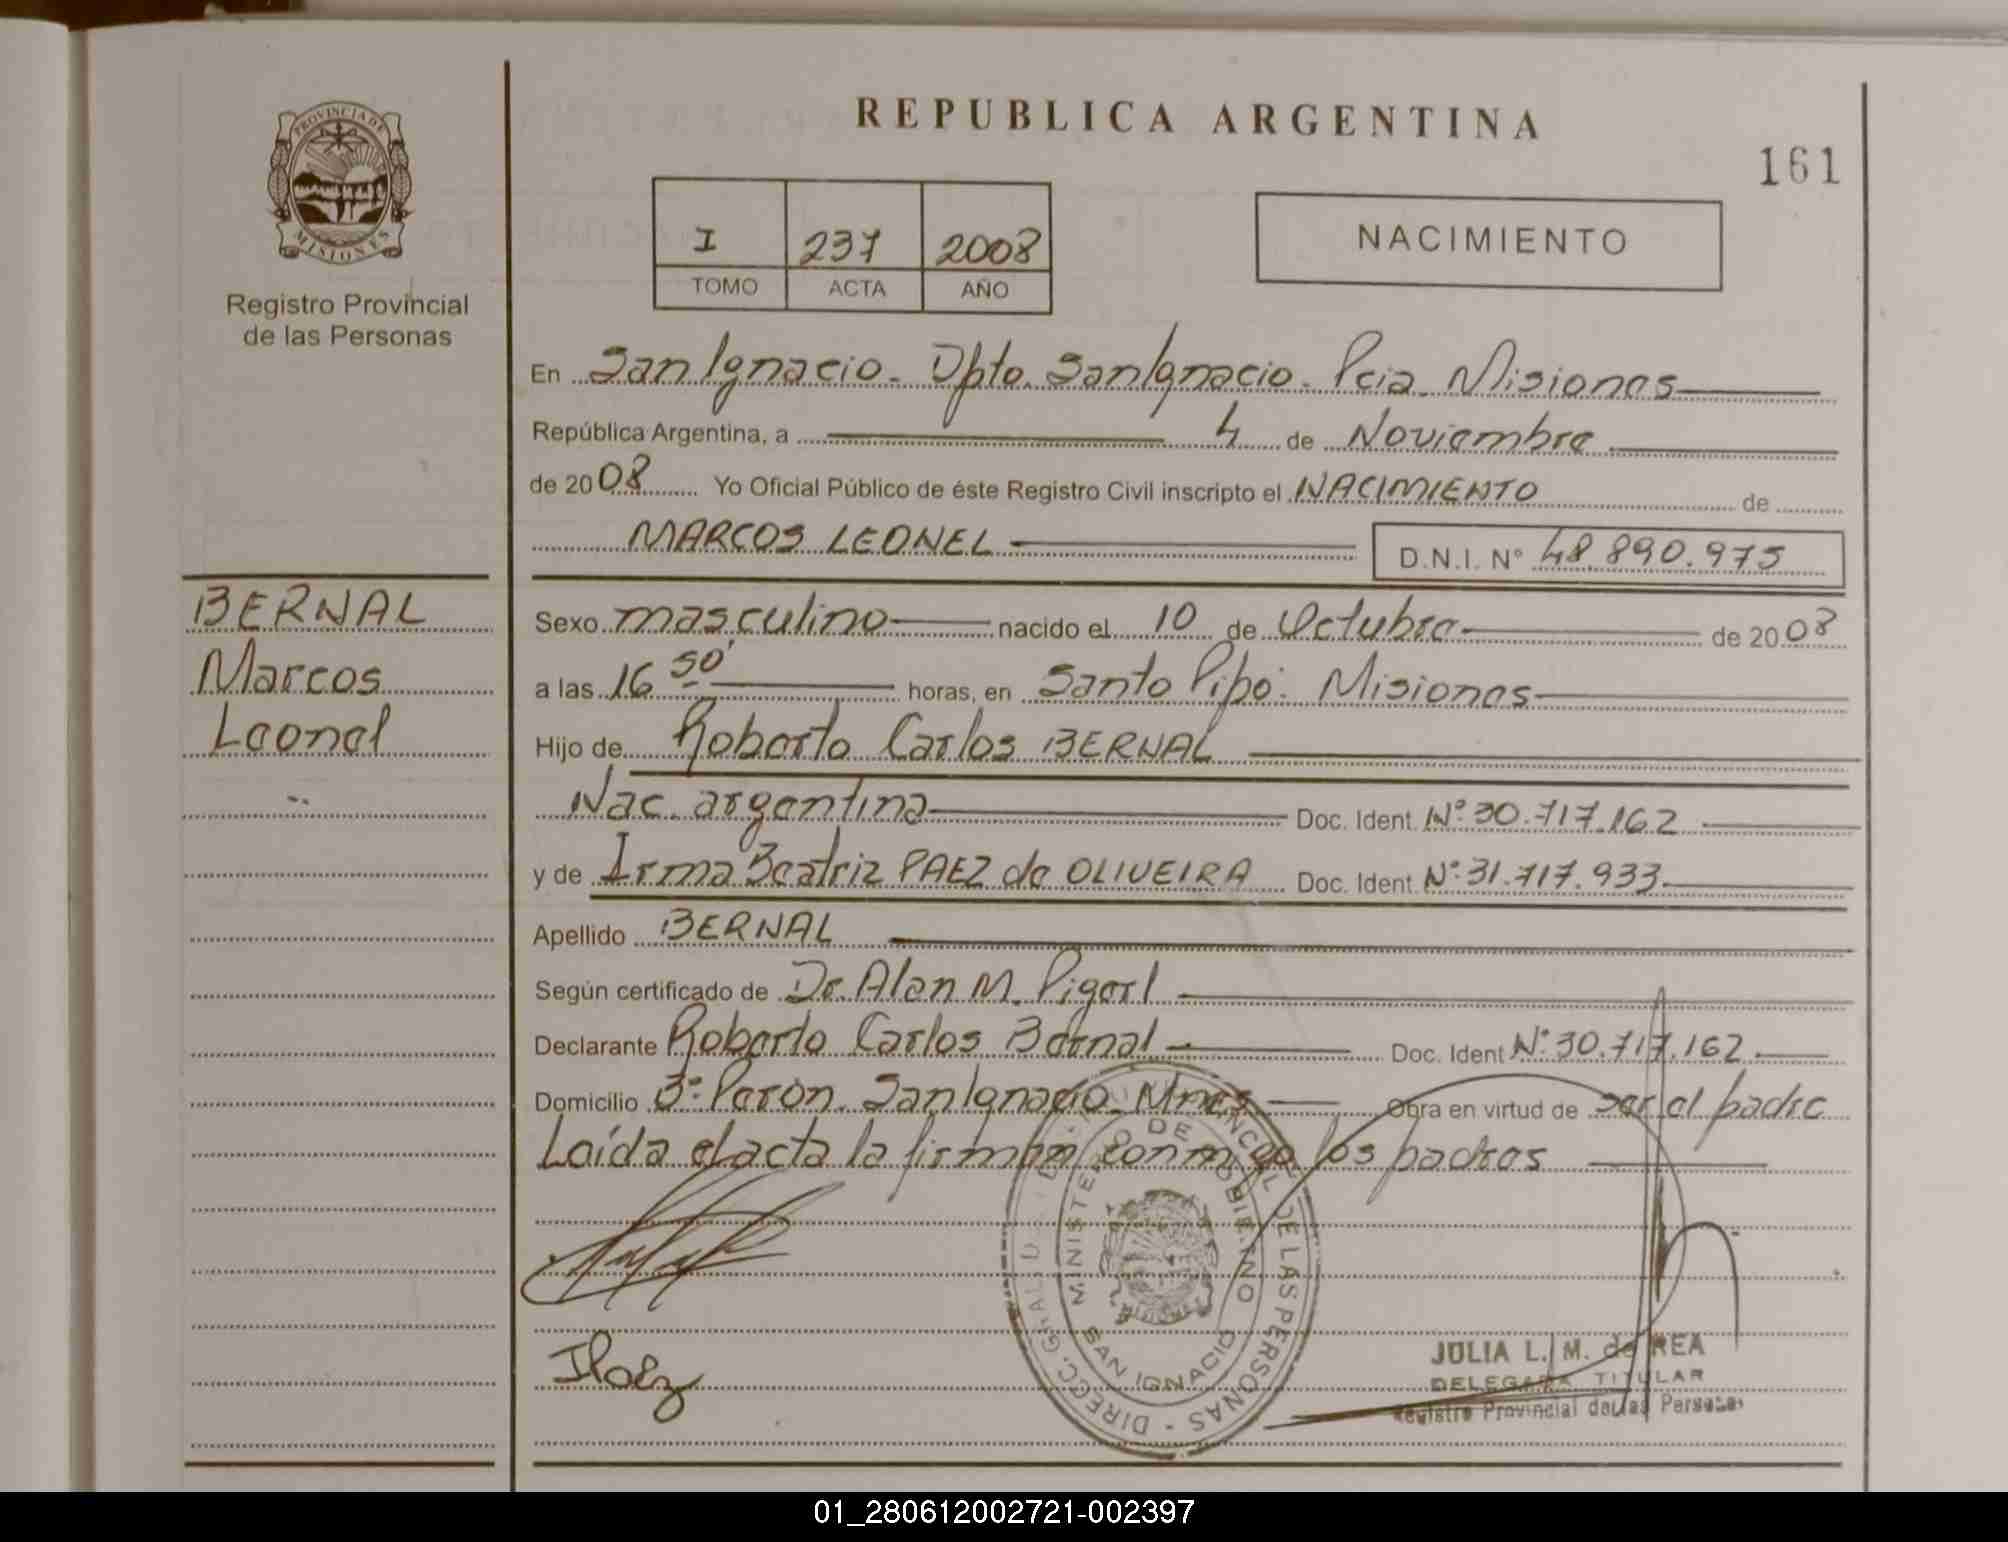 PROVINCIA DE
MISIONES
Registro Provincial
de las Personas
REPUBLICA ARGENTINA
161
I 237 2008
TOMO ACTA AÑO
NACIMIENTO
En San Ignacio. Dpto. San Ignacio. Pcia. Misiones
República Argentina, a 4 de Noviembre
de 2008 Yo Oficial Público de éste Registro Civil inscripto el NACIMIENTO de
MARCOS LEONEL D.N.I. N° 48.890.975
BERNAL
Marcos
Leonel
Sexo masculino nacido el 10 de Octubre de 2008
a las 16 50' horas, en Santo Pipó. Misiones
Hijo de Roberto Carlos BERNAL
Nac. argentina Doc. Ident. N° 30.717.162
y de Irma Beatriz PAEZ de OLIVEIRA Doc. Ident. N° 31.717.933
Apellido BERNAL
Según certificado de Dr. Alan M.
Declarante Roberto Carlos Bernal Doc. Ident N° 30.717.162
Domicilio B° Perón. San Ignacio. Mnes Obra en virtud de ser el padre
Leída el acta la firman conmigo los padres
MINISTERIO DE GOBIERNO
SAN IGNACIO
DIRECC. GRAL. DE LAS PERSONAS
JULIA L. M. de REA
DELEGADA TITULAR
Registro Provincial de las Personas
01_280612002721-002397